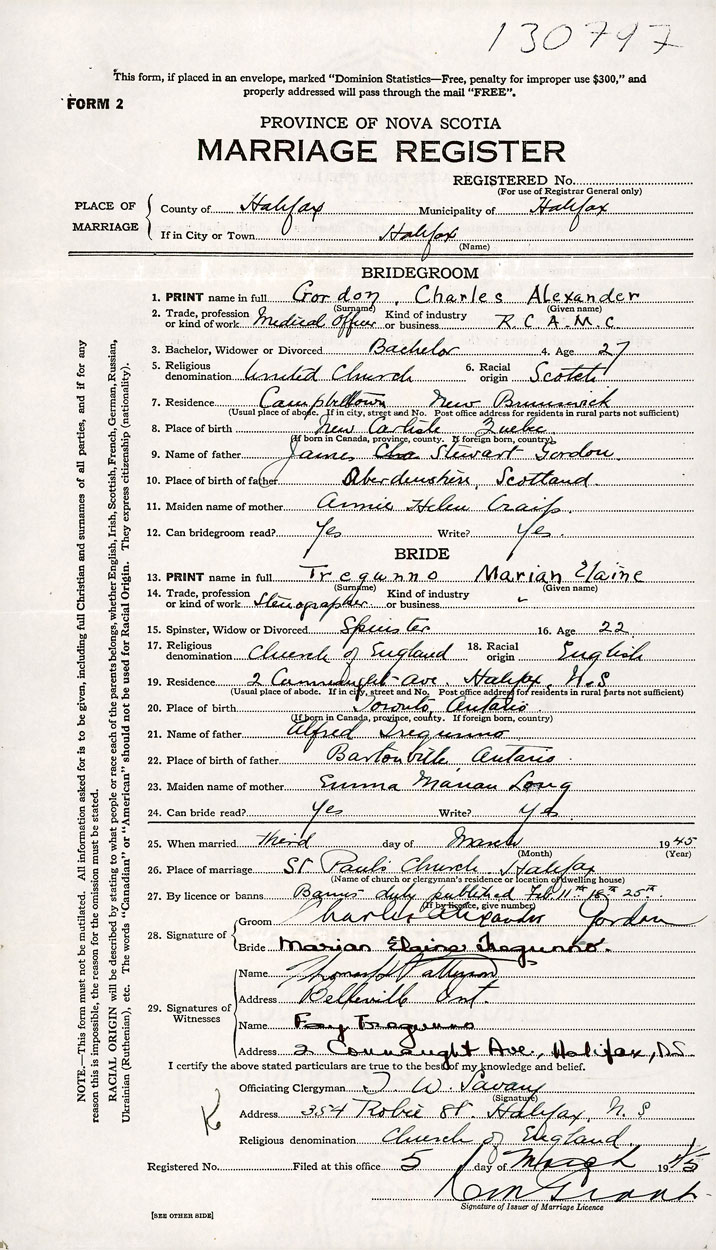 130797
This form, if placed in an envelope, marked "Dominion Statistics—Free, penalty for improper use $300," and
properly addressed will pass through the mail "FREE".
FORM 2
PROVINCE OF NOVA SCOTIA
MARRIAGE REGISTER
REGISTERED No.
(For use of Registrar General only)
PLACE OF MARRIAGE
County of Halifax Municipality of Halifax
If in City or Town Halifax
(Name)
BRIDEGROOM
1. PRINT name in full Gordon, Charles Alexander
(Surname) (Given name)
2. Trade, profession or kind of work Medical Officer Kind of industry or business R.C.A.M.C.
3. Bachelor, Widower or Divorced Bachelor 4. Age 27
5. Religious denomination United Church 6. Racial origin Scotch
7. Residence Campbellton New Brunswick
(Usual place of abode. If in city, street and No. Post office address for residents in rural parts not sufficient)
8. Place of birth New Carlisle Quebec
(If born in Canada, province, county. If foreign born, country)
9. Name of father James Stewart Gordon
10. Place of birth of father Aberdenshire, Scotland
11. Maiden name of mother Annie Helen Craig
12. Can bridegroom read? Yes Write? Yes.
BRIDE
13. PRINT name in full Tregunno Marian Elaine
(Surname) (Given name)
14. Trade, profession or kind of work Stenographer Kind of industry or business "
15. Spinster, Widow or Divorced Spinster 16. Age 22
17. Religious denomination Church of England 18. Racial origin English
19. Residence 2 Connaught Ave. Halifax, N.S
(Usual place of abode. If in city, street and No. Post office address for residents in rural parts not sufficient)
20. Place of birth Toronto, Ontario
(If born in Canada, province, county. If foreign born, country)
21. Name of father Alfred Tregunno
22. Place of birth of father Bartonville, Ontario
23. Maiden name of mother Emma Marian Long
24. Can bride read? Yes Write? Yes
25. When married third day of March 1945
(Month) (Year)
26. Place of marriage St Paul's Church, Halifax
(Name of church or clergyman's residence or location of dwelling house)
27. By licence or banns Banns duly published Feb. 11th 18th 25th
(If by licence, give number)
28. Signature of
Groom Charles Alexander Gordon
Bride Marian Elaine Tregunno.
29. Signatures of Witnesses
Name Patterson
Address Belleville Ont.
Name Fay Tregunno
Address 2 Connaught Ave., Halifax, N.S.
I certify the above stated particulars are true to the best of my knowledge and belief.
Officiating Clergyman T. W. Savary
(Signature)
Address 354 Robie St. Halifax, N.S
Religious denomination Church of England
Registered No. Filed at this office 5 day of March 1945
Signature of Issuer of Marriage Licence
[SEE OTHER SIDE]
NOTE.—This form must not be mutilated. All information asked for is to be given, including full Christian and surnames of all parties, and if for any
reason this is impossible, the reason for the omission must be stated.
RACIAL ORIGIN will be described by stating to what people or race each of the parents belongs, whether English, Irish, Scottish, French, German, Russian,
Ukrainian (Ruthenian), etc. The words "Canadian" or "American" should not be used for Racial Origin. They express citizenship (nationality).